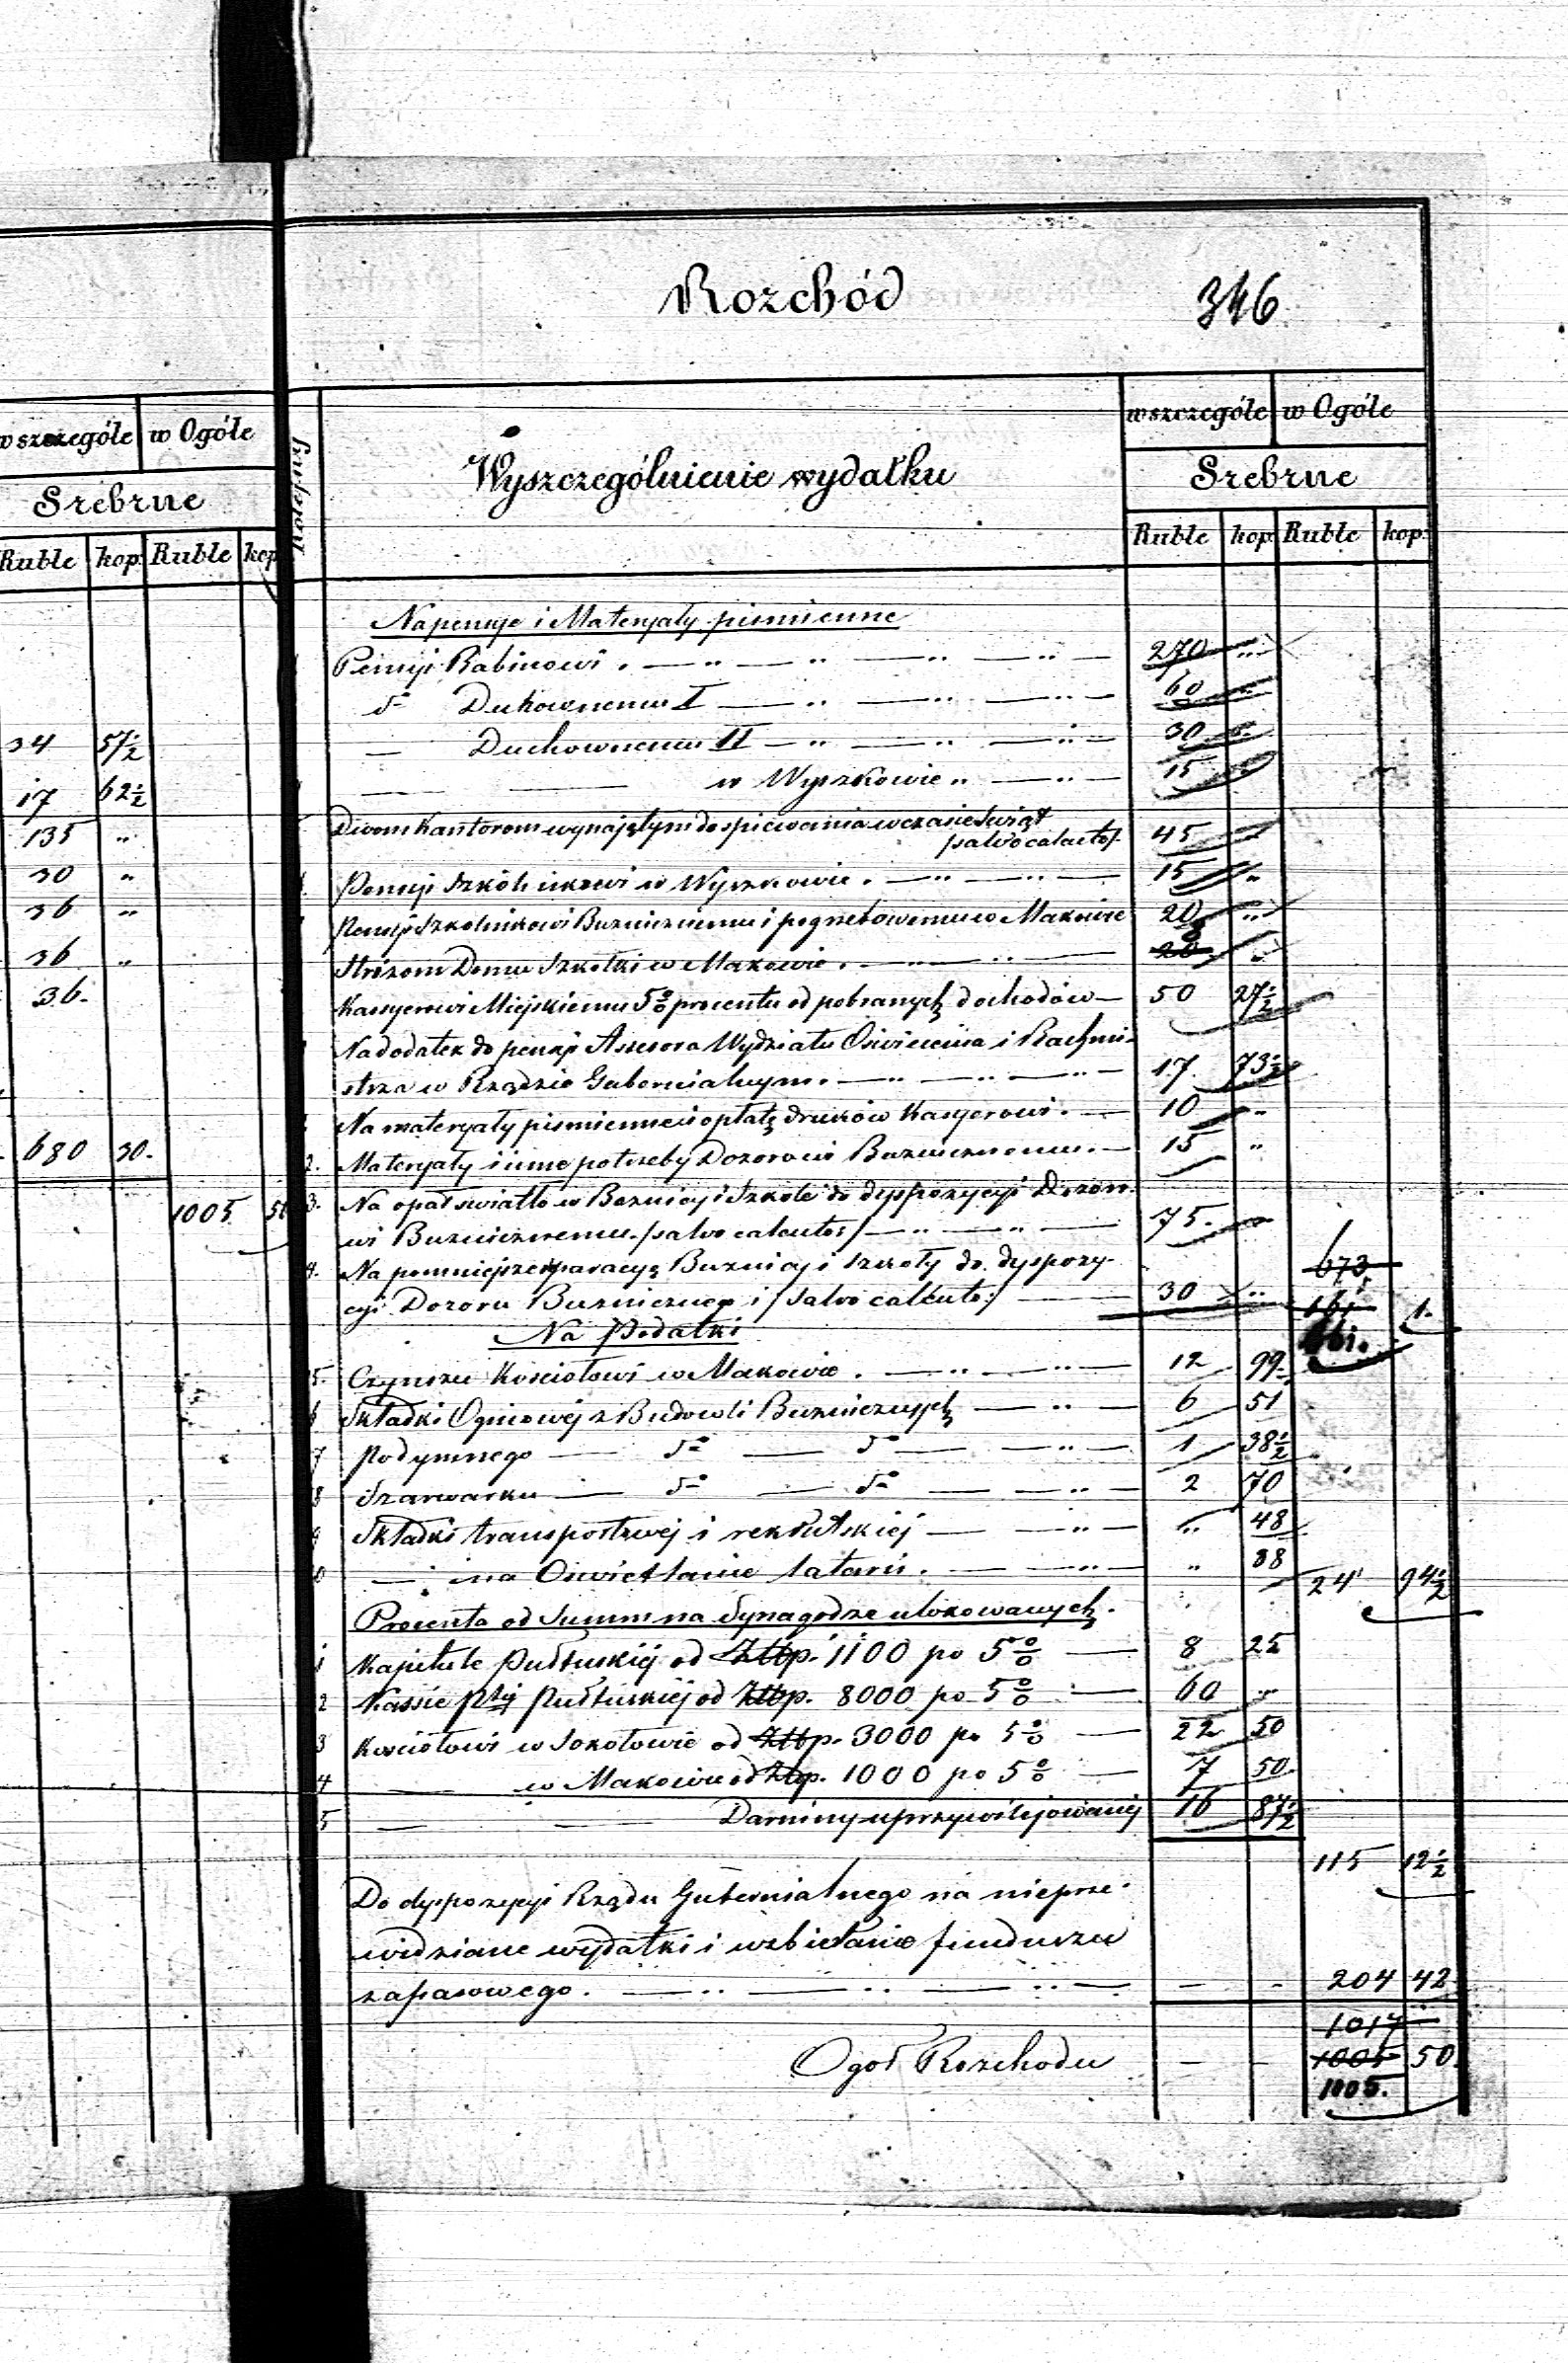 Rozchód 346
w szczególe w Ogóle
Srebrne
Ruble kop: Ruble kop
34 57½
17 62½
135 "
30 "
36 "
36 "
36.
680 30.
1005 50
Wyszczególnienie wydatku
w szczególe w Ogóle
Srebrne
Ruble kop: Ruble kop:
Na pensye i Materyały piśmienne
Pensyi Rabinowi . — " — " — " — " — 270 "
do Duchownemu I — " — " — " — 60 "
— Duchownemu II — " — " — " — 30 "
— — w Wyszkowie " — " — 15 "
Dwom Kantorom wynajętym do spiewania w czasie Swiąt
/salvo calculo/ 45 "
Pensyi Szkolnikowi w Wyszkowie . — " — " — 15 "
Pensyi Szkolnikowi Buznicznemu i pogrzebowemu w Makowie 20 "
Stróżom Domu Szkolki w Makowie . — " — " — 20 8 "
Kassyerowi Miejskiemu 5% procentu od pobranych dochodów — 50 27½
Na dodatek do pensyi Assesora Wydziału Oświecenia i Rachmi-
strza w Rządzie Gubernialnym . — " — " — " — 17 73½
Na materyały piśmienne i opłatę druków Kassyerowi . — 10 "
2. Materyały i inne potrzeby Dozorowi Buzniczemu . — 15 "
3. Na opał swiatło w Boznicy i Szkole do dyspozycyi Dozoro-
wi Buzniczemu /salvo calculo:/ — " — " — 75. "
4. Na pomniejsze reparacyę Buznicy i szkoły do dyspozy-
cyi Dozoru Buzniczego i /salvo calculo:/ — 30 "
673
161
661. 1.
Na Podatki
5. Czynszu Kościołowi w Makowie . — " — " — 12 99.
6 Składki Ogniowej z Budowli Buzniczych — " — 6 51
7 Podymnego — do — do — " — 1 38½
8 Szarwarku — do — do — " — 2 70
9 Składki transportowej i rekrutskiej — " — " 48
0 — na Oświetlanie latarń . — " — " 88
24 94½
Procenta od Summ na Synagodze ulokowanych .
1 Kapitule Pułtuskiej od Złłp. 1100 po 5% — 8 25
2 Kassie Ptej Pułtuskiej od Złłp. 8000 po 5% — 60 "
3 Kościołowi w Sokołowie od Złłp. 3000 po 5% — 22 50
4 — w Makowie od Złłp. 1000 po 5% — 7 50.
5 — — Darniny uprzywilejowanej 16 87½
115 12½
Do dyspozycyi Rządu Gubernialnego na nieprze-
widziane wydatki i wzbieranie funduszu
zapasowego . — " — " — " — — - 204 42
1017
Ogoł Rozchodu — — 1005 50
1005.